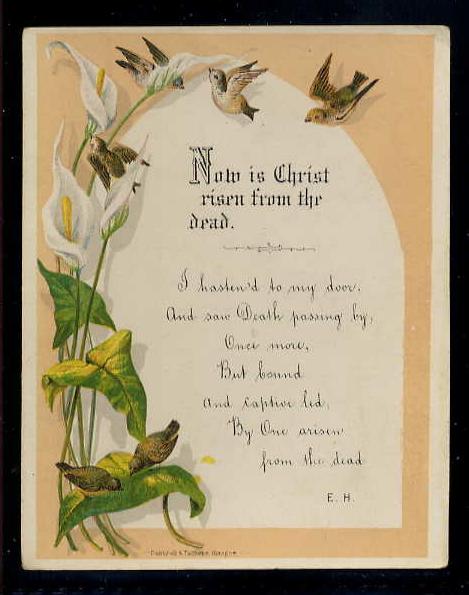 Now is Christ
risen from the
dead.
I hasten'd to my door.
And saw Death passing by,
Once more,
But bound
And captive led,
By One arisen
from the dead
E. H.